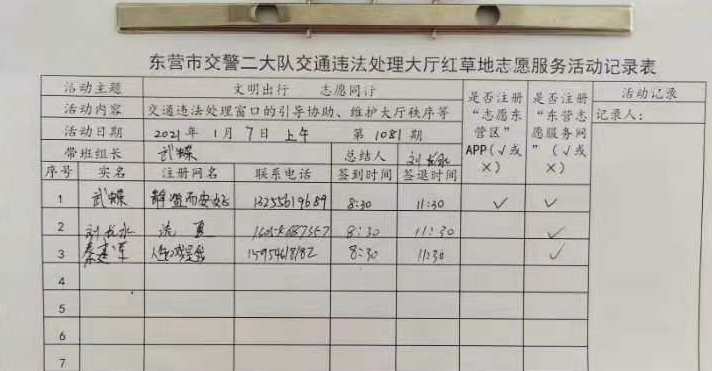 东营市交警二大队交通违法处理大厅红草地志愿服务活动记录表
活动主题 文明出行 志愿同行 是否注册“志愿东营区”APP(√或×) 是否注册“东营志愿服务网”(√或×) 活动记录
活动内容 交通违法处理窗口的引导协助、维护大厅秩序等 记录人:
活动日期 2021年 1月 7日 上午 第 1081 期
带班组长 武蝶 总结人 刘长水
序号 实名 注册网名 联系电话 签到时间 签退时间
1 武蝶 13255619689 8:30 11:30 √ √
2 刘长水 8:30 11:30 √
3 秦建军 15954618182 8:30 11:30 √
4
5
6
7